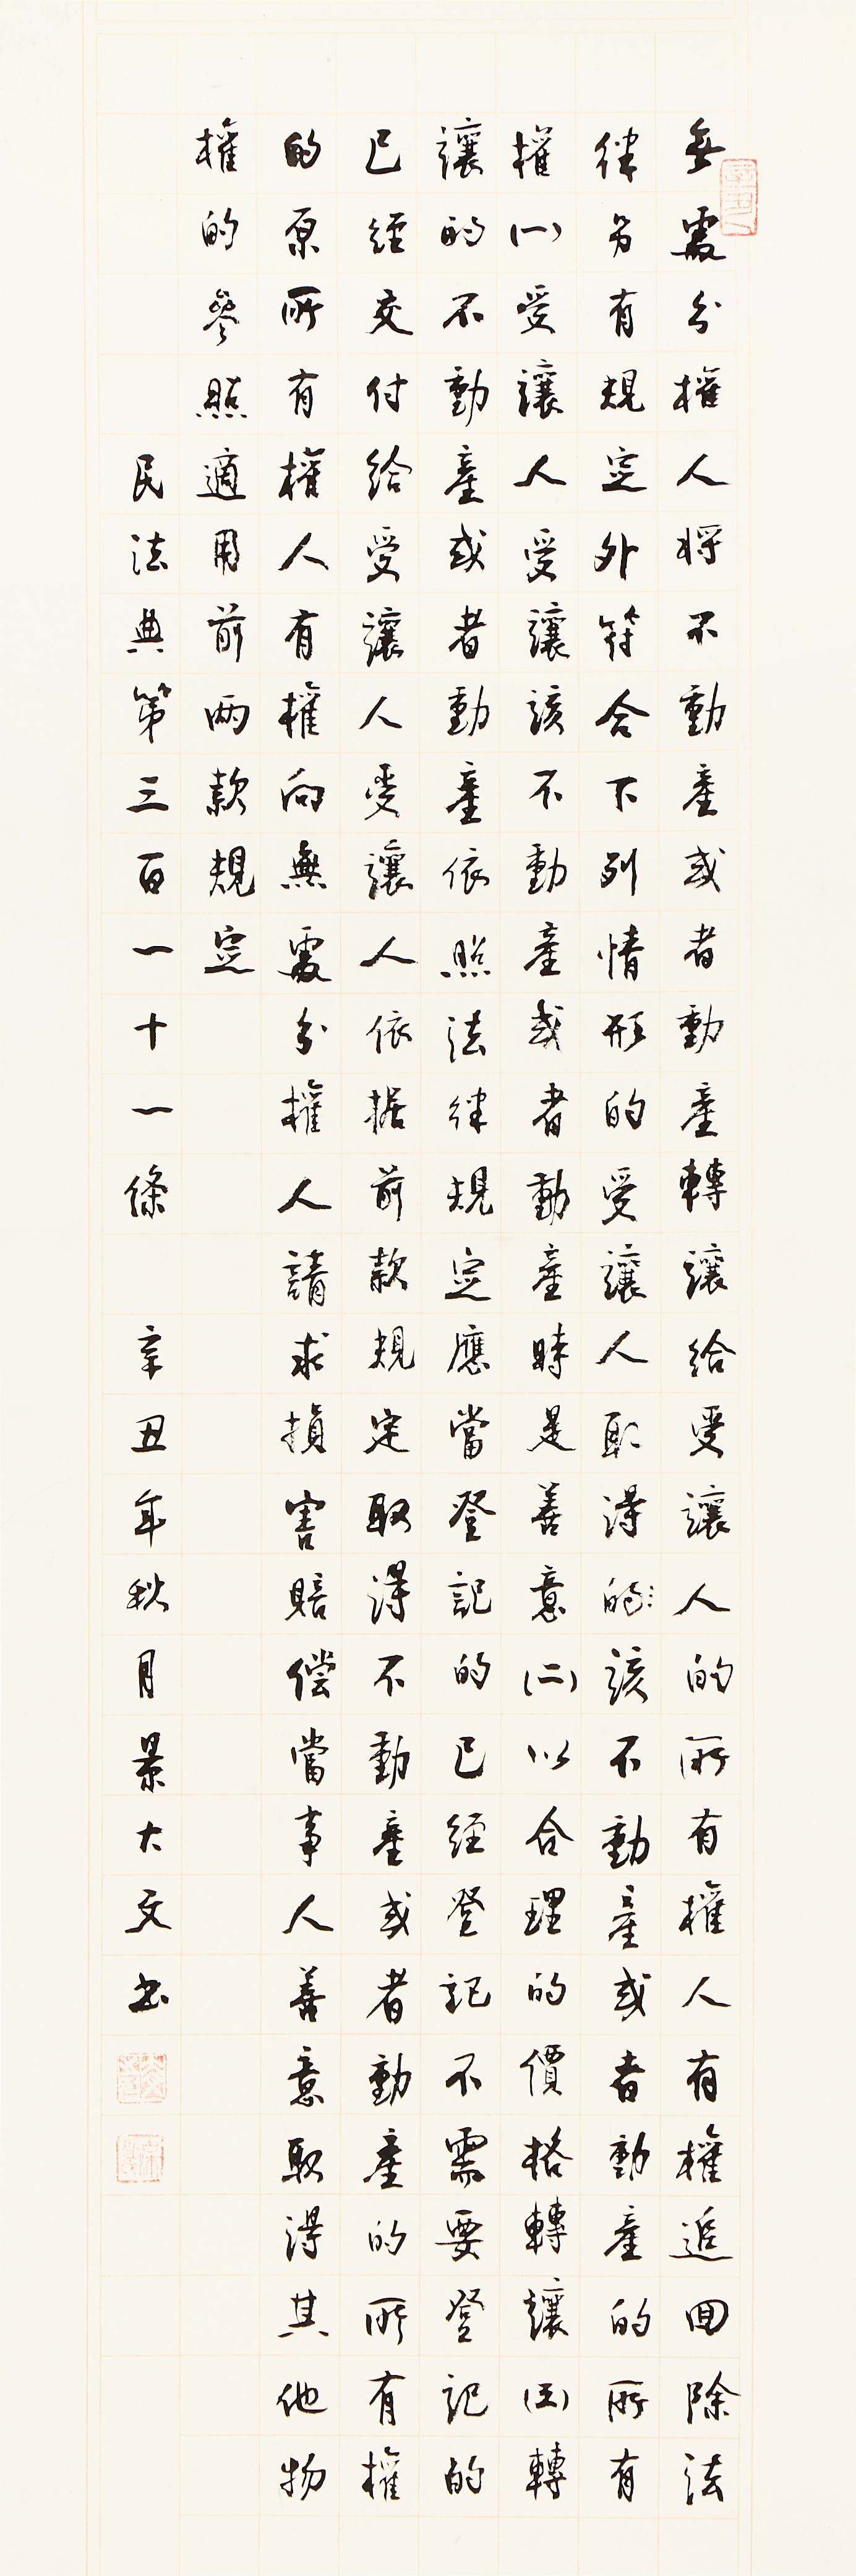 無處分權人將不動產或者動產轉讓給受讓人的所有權人有權追回除法
律另有規定外符合下列情形的受讓人取得的該不動產或者動產的所有
權(一)受讓人受讓該不動產或者動產時是善意(二)以合理的價格轉讓(三)轉
讓的不動產或者動產依照法律規定應當登記的已經登記不需要登記的
已經交付給受讓人受讓人依据前款規定取得不動產或者動產的所有權
的原所有權人有權向無處分權人請求損害賠偿當事人善意取得其他物
權的參照適用前兩款規定
民法典第三百一十一條 辛丑年秋月景大文书